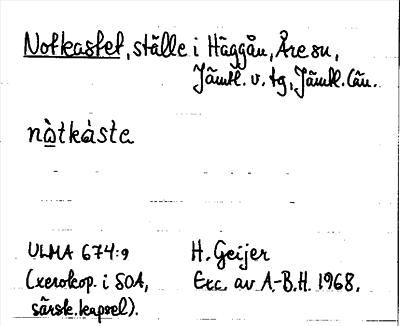 Notkastet, ställe i Häggån, Åre sn,
Jämtl. v. tg, Jämtl. län.
nòtkàsta
ULMA 674:9
(xerokop. i SOA,
särsk. kapsel).
H. Geijer
Exc. av A-B.H. 1968.